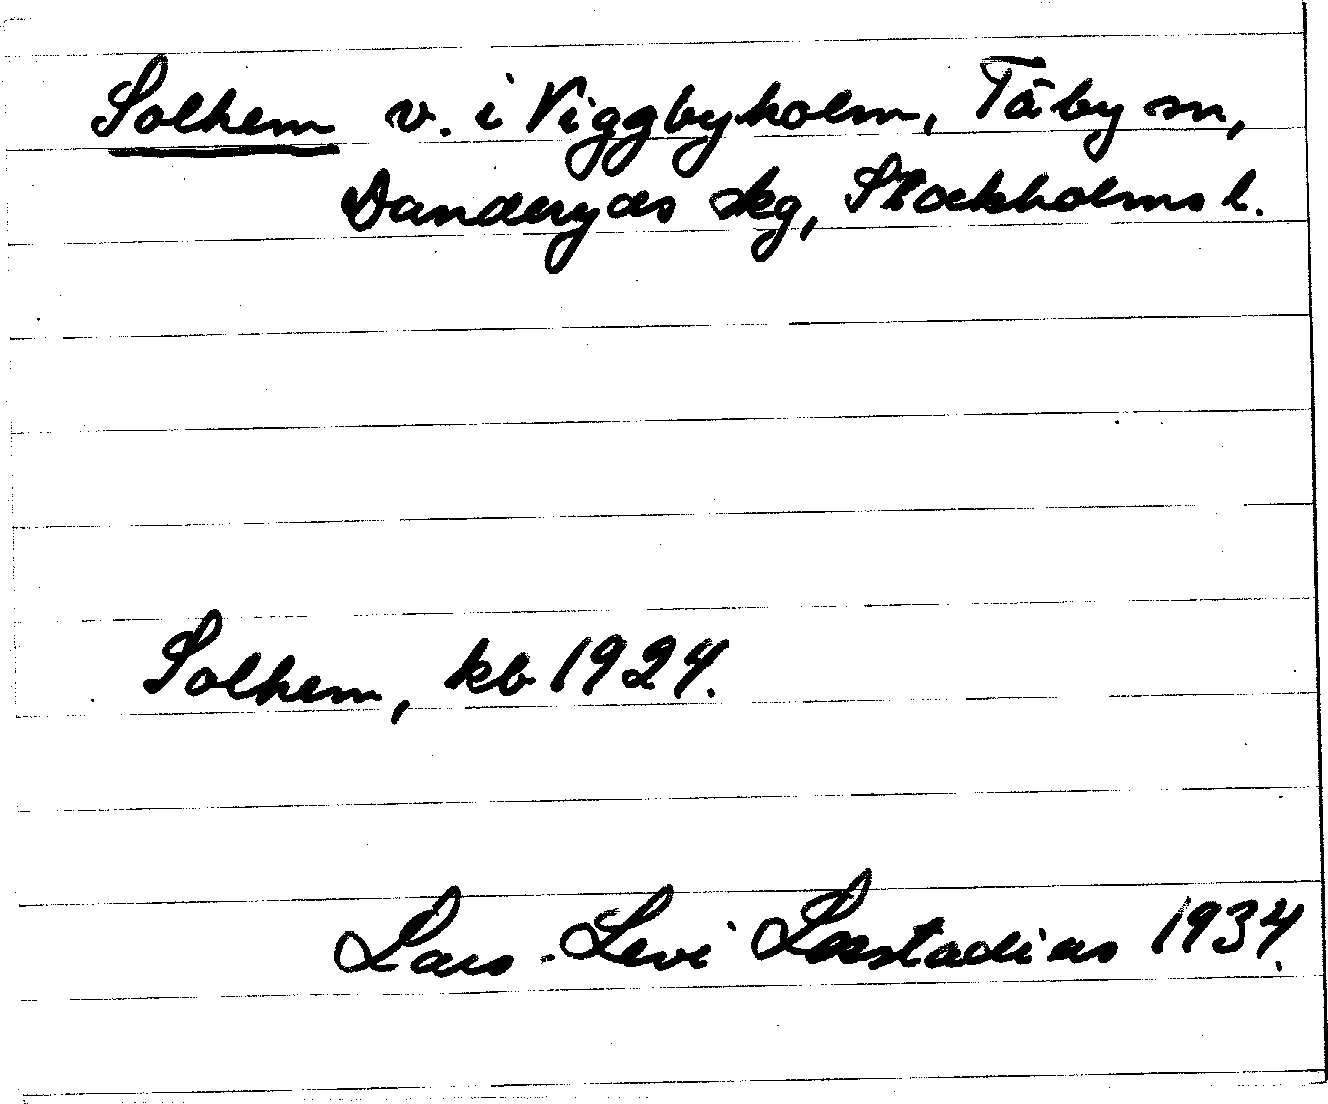 Solhem v. i Viggbyholm, Täby sn,
Danderyds skg, Stockholms l.
Solhem, kb 1924.
Lars-Levi Læstadius 1934.